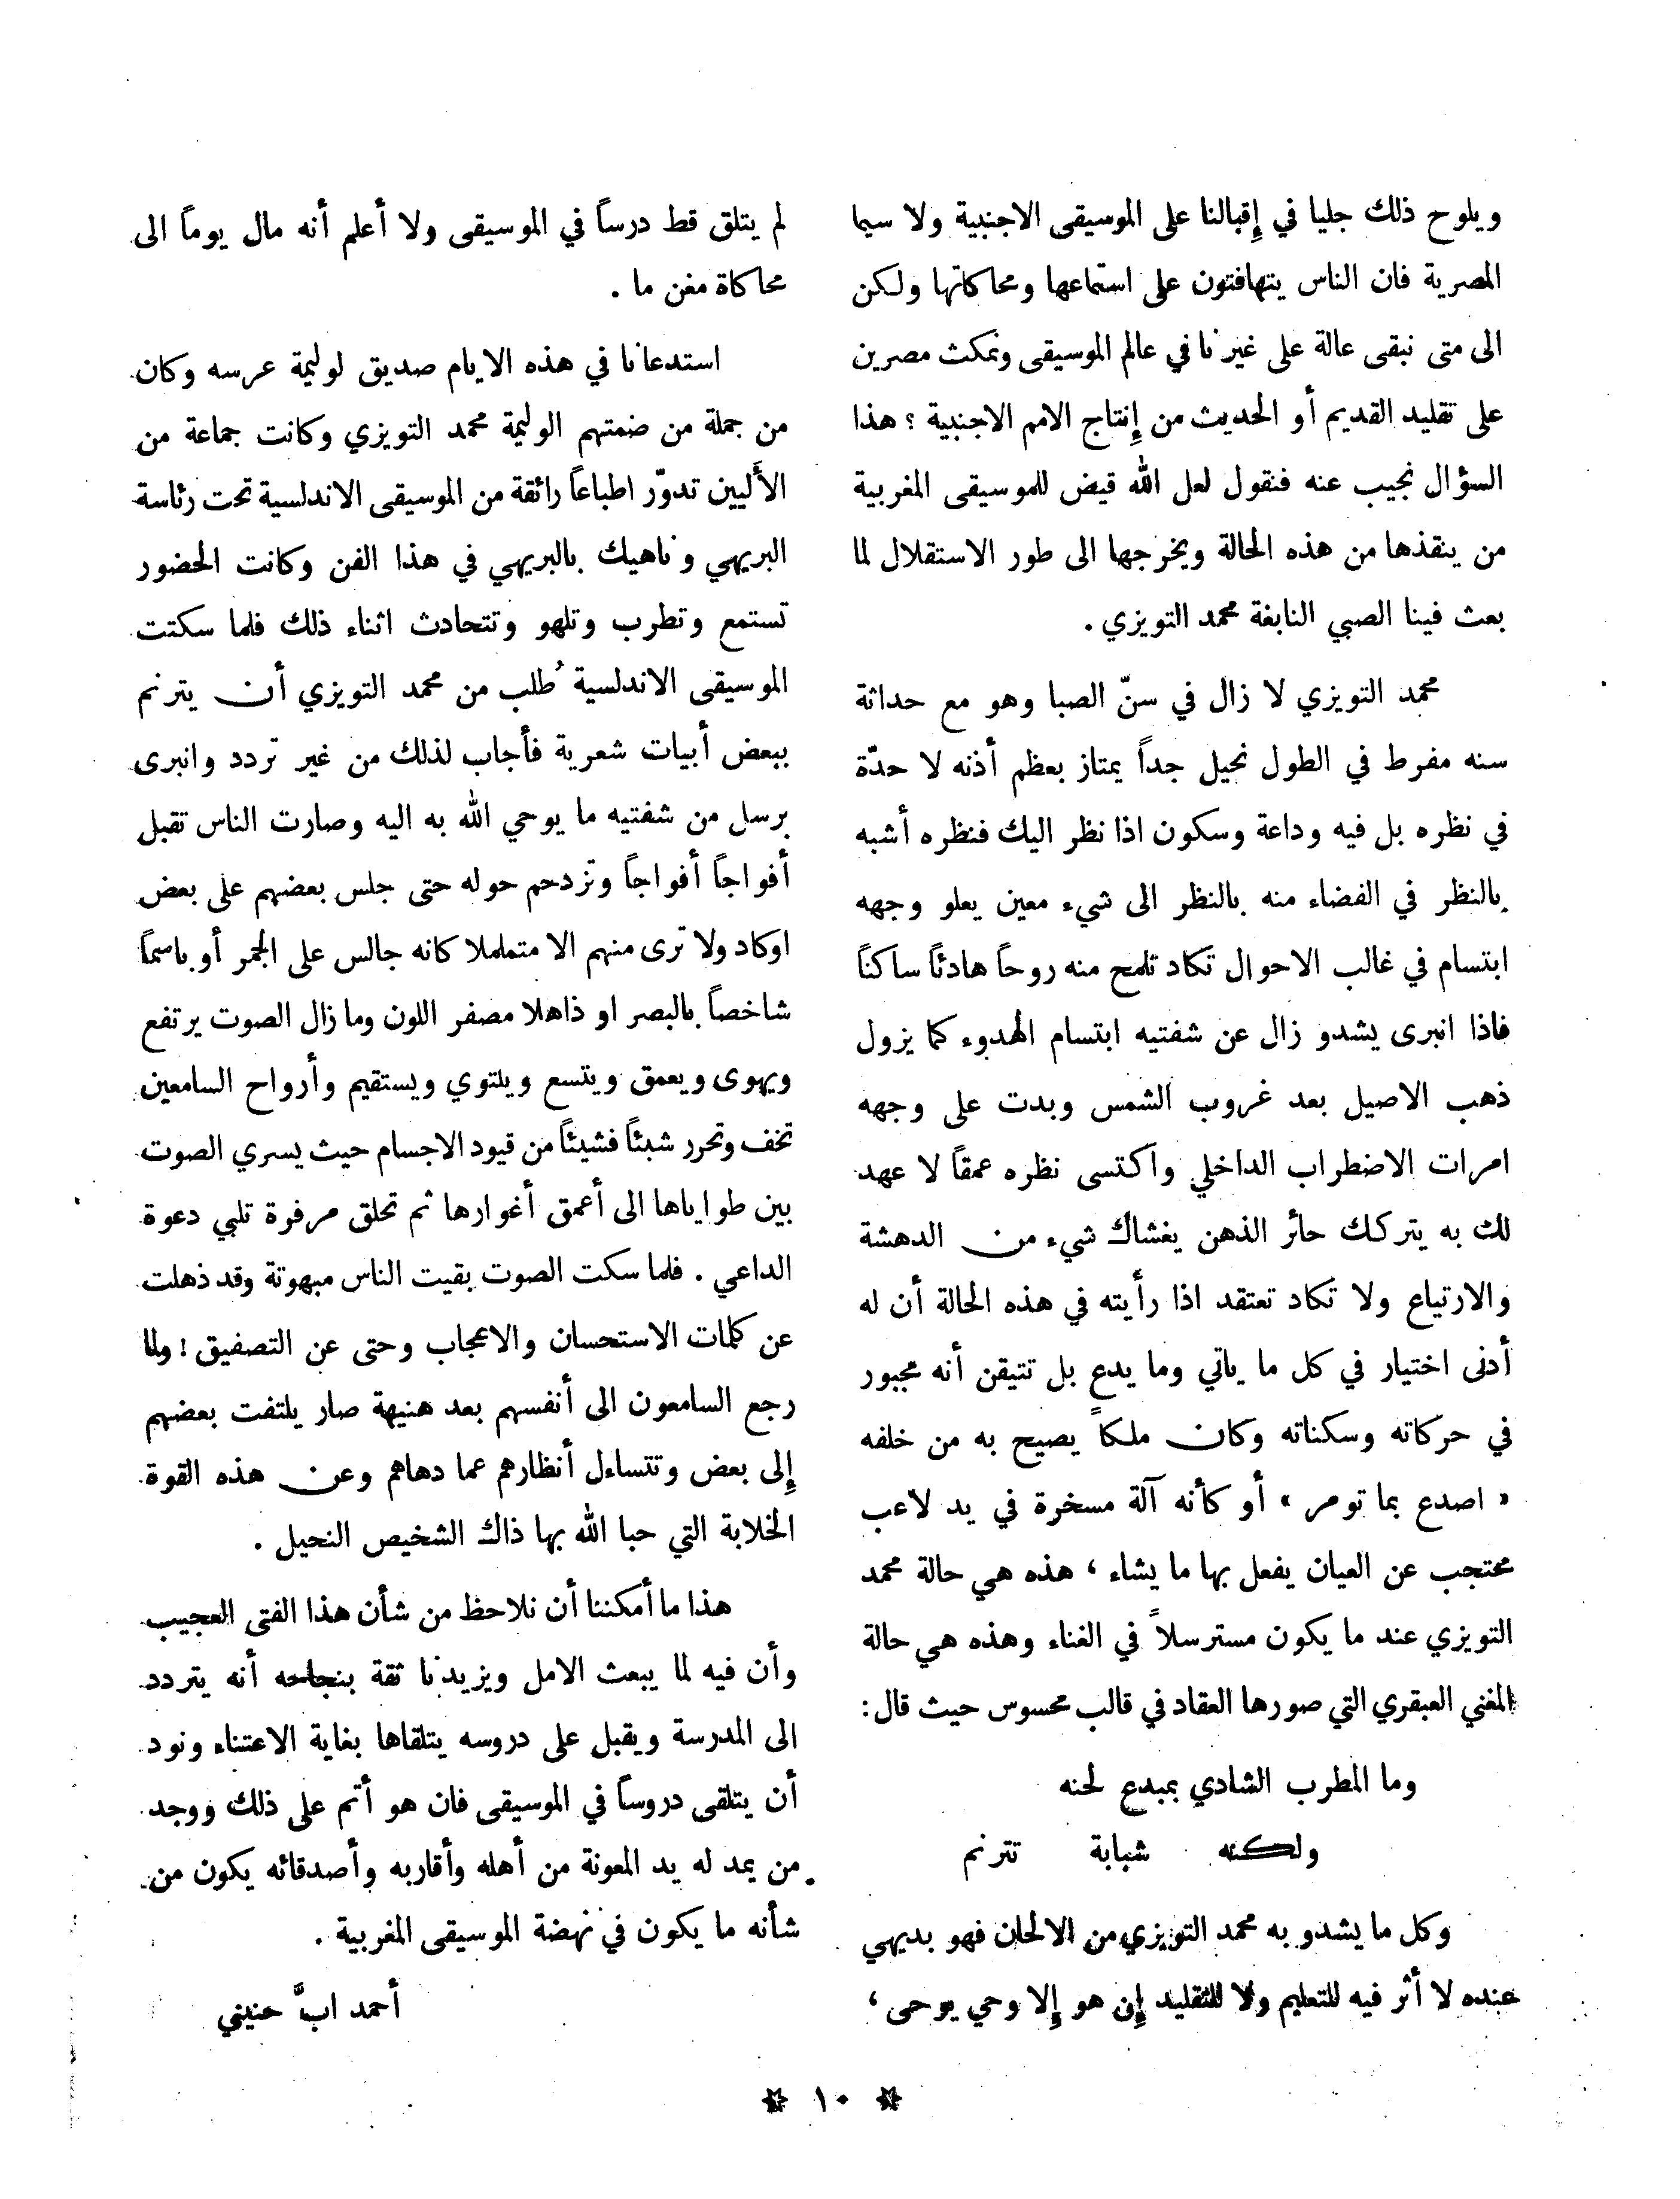 ويلوح ذلك جليا في إقبالنا على الموسيقى الاجنبية ولا سيما
المصرية فان الناس يتهافتون على استماعها ومحاكاتها ولكن
الى متى نبقى عالة على غيرنا في عالم الموسيقى ونمكث مصرين
على تقليد القديم أو الحديث من إنتاج الامم الاجنبية ؟ هذا
السؤال نجيب عنه فنقول لعل الله قيض للموسيقى المغربية
من ينقذها من هذه الحالة ويخرجها الى طور الاستقلال لما
بعث فينا الصبي النابغة محمد التويزي .
محمد التويزي لا زال في سنّ الصبا وهو مع حداثة
سنه مفرط في الطول نحيل جداً يمتاز بعظم أذنه لا حدّة
في نظره بل فيه وداعة وسكون اذا نظر اليك فنظره أشبه
بالنظر في الفضاء منه بالنظر الى شيء معين يعلو وجهه
ابتسام في غالب الاحوال تكاد تلمح منه روحاً هادئاً ساكناً
فاذا انبرى يشدو زال عن شفتيه ابتسام الهدوء كما يزول
ذهب الاصيل بعد غروب الشمس وبدت على وجهه
امرات الاضطراب الداخلي واكتسى نظره عمقاً لا عهد
لك به يتركك حائر الذهن يغشاك شيء من الدهشة
والارتياع ولا تكاد تعتقد اذا رأيته في هذه الحالة أن له
أدنى اختيار في كل ما ياتي وما يدع بل تتيقن أنه مجبور
في حركاته وسكناته وكان ملكاً يصيح به من خلفه
« اصدع بما تومر » أو كأنه آلة مسخرة في يد لاعب
محتجب عن العيان يفعل بها ما يشاء ، هذه هي حالة محمد
التويزي عند ما يكون مسترسلاً في الغناء وهذه هي حالة
المغني العبقري التي صورها العقاد في قالب محسوس حيث قال :
وما المطرب الشادي بمبدع لحنه
ولكنه شبابة تترنم
وكل ما يشدو به محمد التويزي من الالحان فهو بديهي
عنده لا أثر فيه للتعليم ولا للتقليد إن هو إلا وحي يوحى ،
لم يتلق قط درساً في الموسيقى ولا أعلم أنه مال يوماً الى
محاكاة مغن ما .
استدعانا في هذه الايام صديق لوليمة عرسه وكان
من جملة من ضمتهم الوليمة محمد التويزي وكانت جماعة من
الأَليين تدوّر اطباعاً رائقة من الموسيقى الاندلسية تحت رئاسة
البريهي وناهيك بالبريهي في هذا الفن وكانت الحضور
تستمع وتطرب وتلهو وتتحادث اثناء ذلك فلما سكتت
الموسيقى الاندلسية طُلب من محمد التويزي أن يترنم
ببعض أبيات شعرية فأجاب لذلك من غير تردد وانبرى
يرسل من شفتيه ما يوحي الله به اليه وصارت الناس تقبل
أفواجاً أفواجاً وتزدحم حوله حتى جلس بعضهم على بعض
اوكاد ولا ترى منهم الا متململا كانه جالس على الجمر أو باسماً
شاخصاً بالبصر او ذاهلا مصفر اللون وما زال الصوت يرتفع
ويهوى ويعمق ويتسع ويلتوي ويستقيم وأرواح السامعين
تخف وتحرر شيئاً فشيئاً من قيود الاجسام حيث يسري الصوت
بين طواياها الى أعمق أغوارها ثم تحلق مرفرة تلبي دعوة
الداعي . فلما سكت الصوت بقيت الناس مبهوتة وقد ذهلت
عن كلمات الاستحسان والاعجاب وحتى عن التصفيق ! ولما
رجع السامعون الى أنفسهم بعد هنيهة صار يلتفت بعضهم
إلى بعض وتتساءل أنظارهم عما دهاهم وعن هذه القوة
الخلابة التي حبا الله بها ذاك الشخيص النحيل .
هذا ما أمكننا أن نلاحظ من شأن هذا الفتى العجيب
وأن فيه لما يبعث الامل ويزيدنا ثقة بنجاحه أنه يتردد
الى المدرسة ويقبل على دروسه يتلقاها بغاية الاعتناء ونود
أن يتلقى دروساً في الموسيقى فان هو أتم على ذلك ووجد
من يمد له يد المعونة من أهله وأقاربه وأصدقائه يكون من
شأنه ما يكون في نهضة الموسيقى المغربية .
أحمد ابَّ حنيني
* ١٠ *